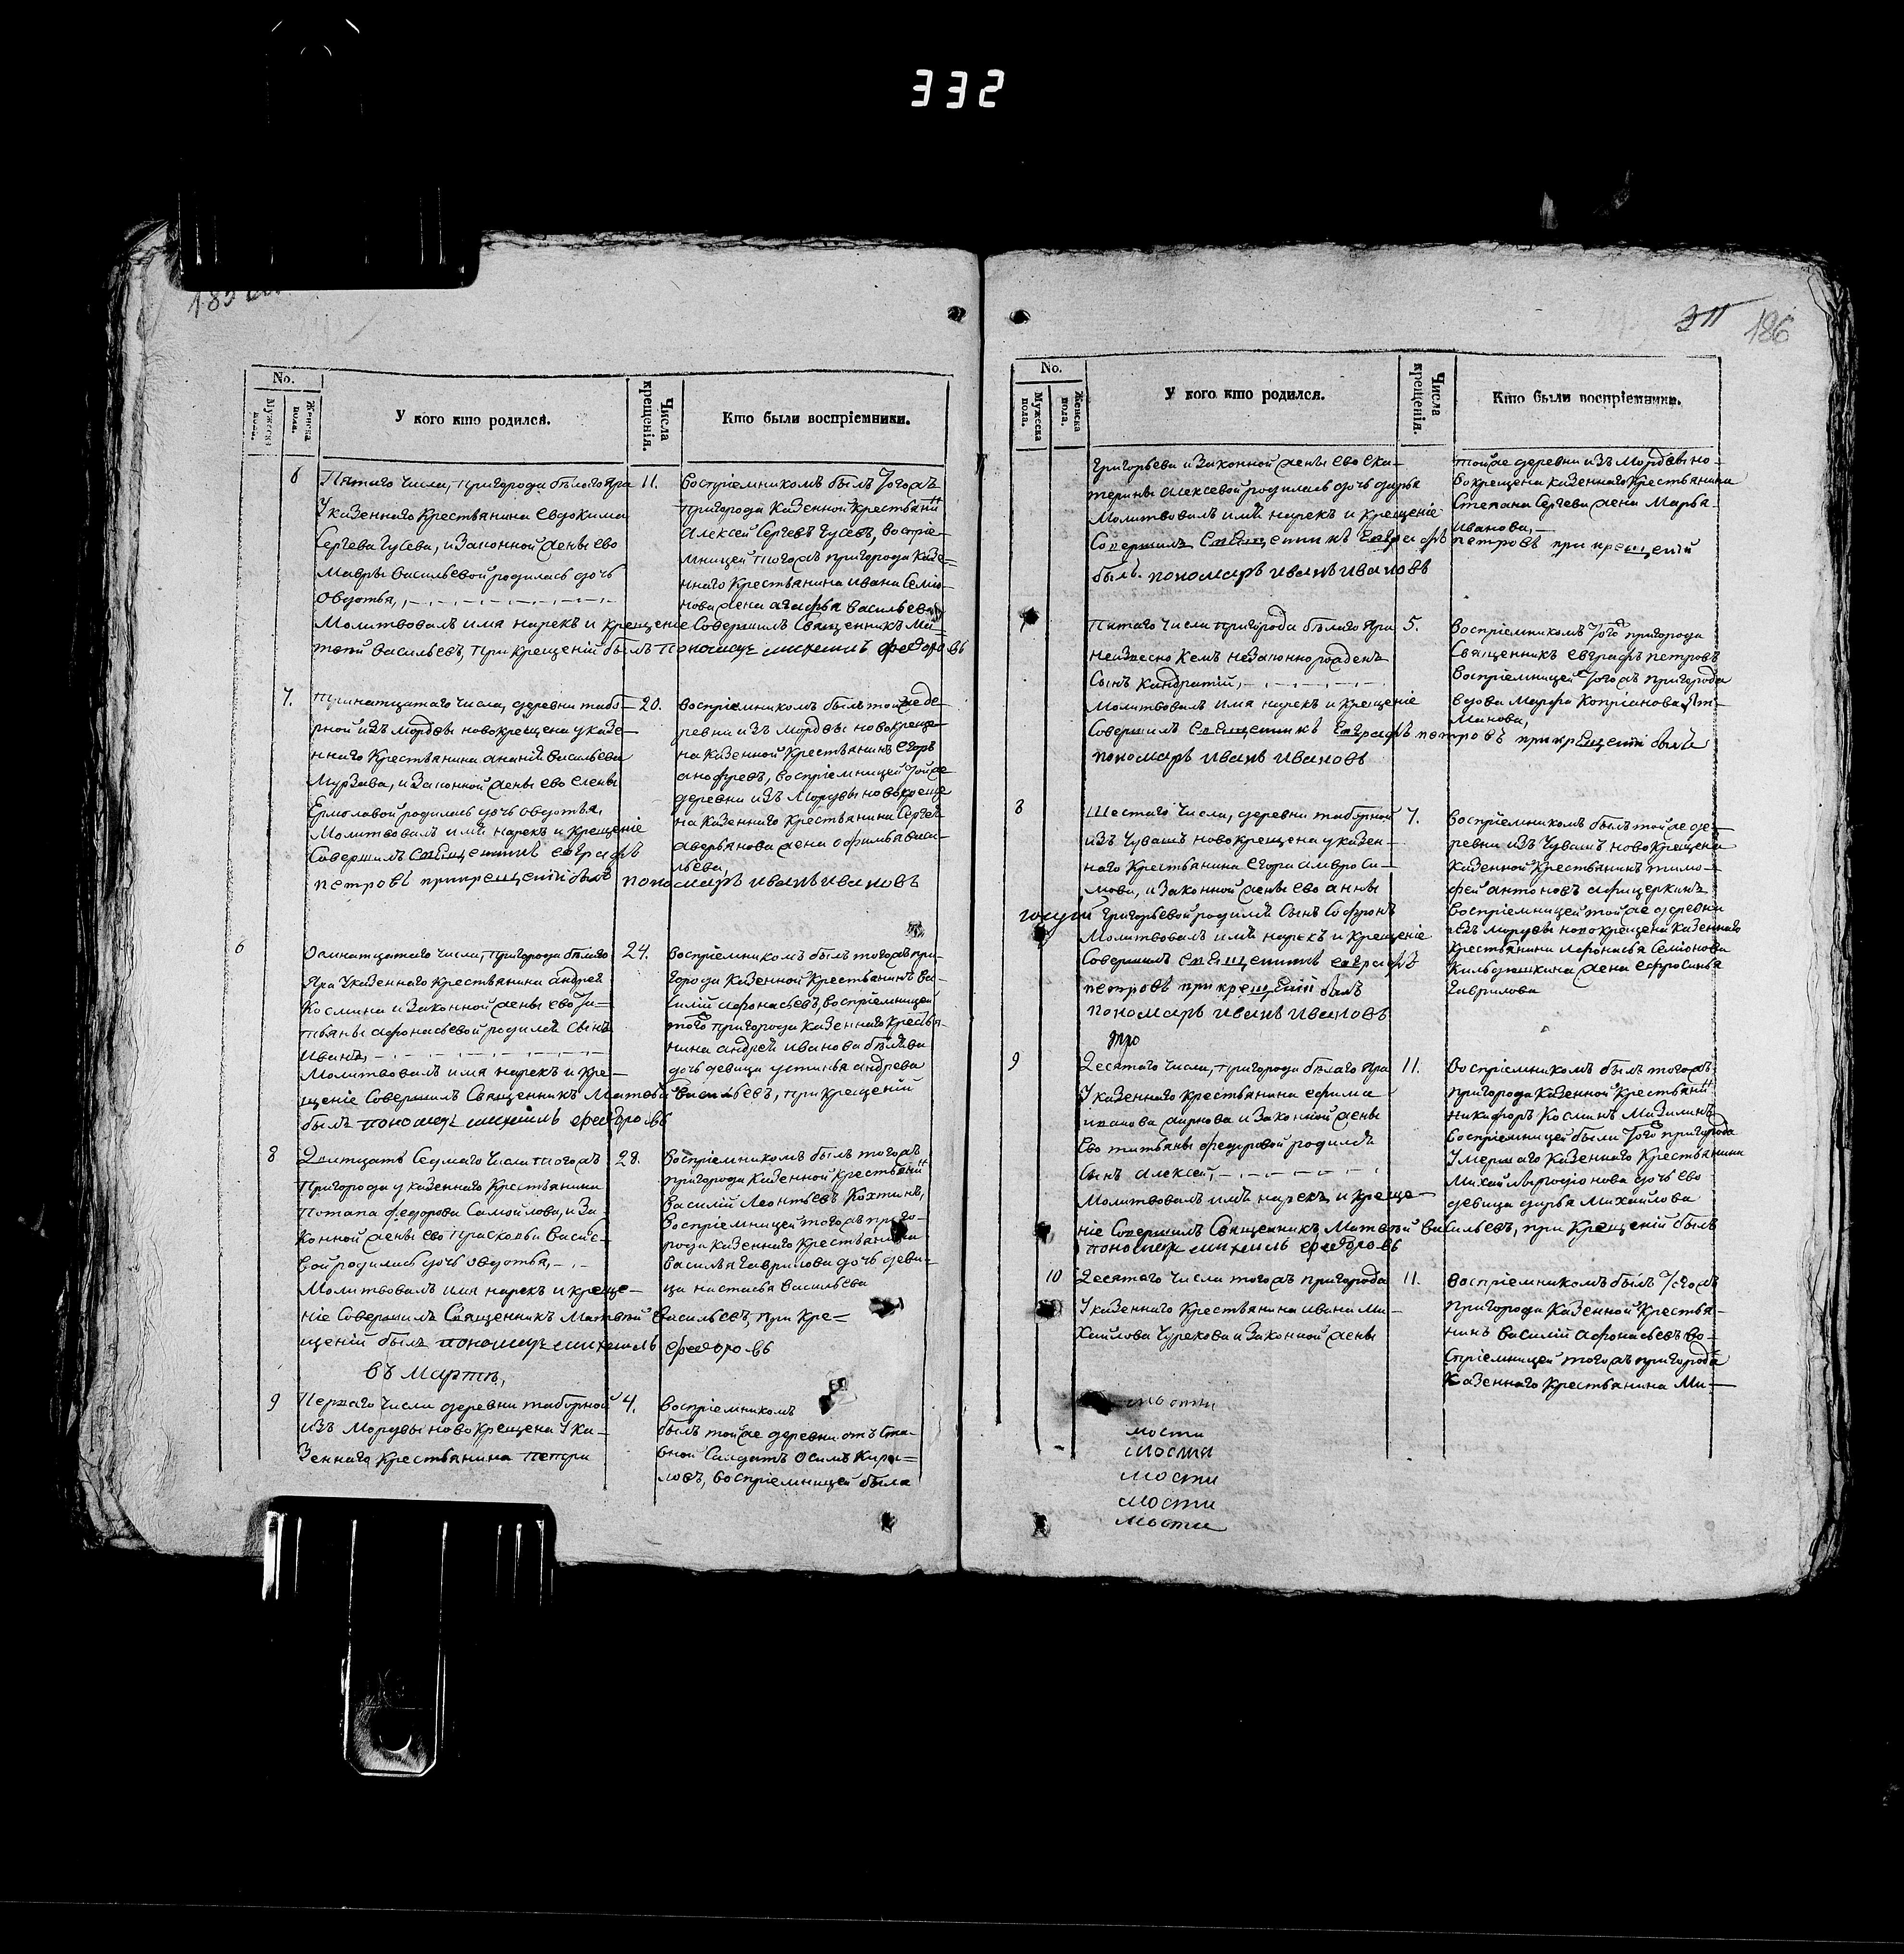 332
311 186
No.
Мужеска пола.
Женска пола.
У кого кто родился.
Числа крещенія.
Кто были воспріемники.
6 Пятаго числа, пригорода белого Яра 11.
У казеннаго крестьянина Евдокима
Сергева Гусева, и законной жены ево
Мавры васильевой родилась дочь
Овдотья,
Молитвовалъ имя нарекъ и крещение Совершилъ Священникъ Ма-
твѣй васильевъ, при крещеніи былъ пономарь михаилъ федоровъ
воспріемникомъ былъ тогожъ
пригорода казенной крестьянинъ
алексей Сергевъ Гусевъ, воспріе-
мницей тогожъ пригорода казе-
ннаго крестьянина ивана Семіо-
нова жена агафья васильева
7. тринатцатаго числа, деревни табо- 20.
рной изъ мордвы новокрещена у казе-
ннаго крестьянина ананій васильева
Мурзава, и законной жены ево елены
Ермоловой родилась дочь овдотья,
Молитвовалъ имя нарекъ и крещеніе
Совершилъ священникъ евграфъ
петровъ прикрещеніи былъ пономарь иванъ ивановъ
воспріемникомъ былъ тойже де-
ревни изъ мордвы новокреще-
на казенной крестьянинъ егоръ
анофревъ, воспріемницей тойже
деревни изъ мордвы новокреще
на казеннаго крестьянина Сергея
аверьянова жена офимья васи-
льева,
6 Осмнатцатаго числа, пригорода белаго 24.
Яра у казеннаго крестьянина андрея
Космина и законной жены ево Та-
тьяны афонасьевой родился сынъ
иванъ,
Молитвовалъ имя нарекъ и кре-
щеніе Совершилъ Священникъ Матвей васильевъ, при крещеніи
былъ пономарь михаилъ федоровъ
воспріемникомъ былъ тогожъ при-
города казенной крестьянинъ ва-
силій афонасьевъ, воспріемницей
того пригорода казеннаго крестья-
нина андрей иванова беляева
дочь девица устинья андрева
8 Двятцать седмаго числа тогожъ 28.
Пригорода у казеннаго крестьянина
Потапа федорова Самойлова, и за-
конной жены ево Прасковьи васи-
вой родилась дочь овдотья,
Молитвовалъ имя нарекъ и креще-
ніе Совершилъ Священникъ Матвей васильевъ, при кре-
щеніи былъ пономарь михаилъ федоровъ
воспріемникомъ былъ тогожъ
пригорода казенной крестьянинъ
василій Леонтьевъ Кохтинъ,
воспріемницей тогожъ приго-
рода казеннаго крестьянина
василья Гаврилова дочь деви-
ца настасья васильева
въ Марте,
9 Перваго числа деревни таборной 4.
изъ Мордвы новокрещена у ка-
зеннаго крестьянина петра
воспріемникомъ
былъ тойже деревни отъ ста-
вной Салдатъ осипъ кири-
ловъ, воспріемницей была
No.
Мужеска пола.
Женска пола.
У кого кто родился.
Числа крещенія.
Кто были воспріемники.
Григорьева и законной жены ево ека-
терины алексевой родилась дочь дарья
Молитвовалъ имя нарекъ и крещеніе
Совершилъ священникъ евграфъ петровъ при крещеніи
былъ пономарь иванъ ивановъ
тойже деревни изъ Мордвы но-
вокрещена казеннаго крестьянина
Степана Сергева жена Марья
иванова,
7 Пятаго числа пригорода белаго Яра 5.
неизвесно кемъ незаконнорожденъ
Сынъ Кандратій,
Молитвовалъ имя нарекъ и крещеніе
Совершилъ священникъ евграфъ петровъ прикрещеніи былъ
пономарь иванъ ивановъ
воспріемникомъ тогожъ пригорода
Священникъ евграфъ петровъ
воспріемницей тогожъ пригорода
вдова Марфа
8 Шестаго числа, деревни таборной 7.
изъ Чувашъ новокрещена у казен-
наго крестьянина егора амвроси-
мова, и законной жены ево анны
Григорьевой родился Сынъ Софронъ
Молитвовалъ имя нарекъ и крещеніе
Совершилъ священникъ евграфъ
петровъ прикрещеніи былъ
пономарь иванъ ивановъ
воспріемникомъ былъ тойже де-
ревни изъ Чувашъ новокрещена
казенной крестьянинъ тимо-
фей антоновъ
воспріемницей тойже деревни
изъ Мордвы новокрещена казеннаго
крестьянина афонасья Семіонова
Кильдюшкина жена ефросинья
Гаврилова
9 Десятаго числа, пригорода белаго Яра 11.
У казеннаго крестьянина ефима
иванова жирнова и законной жены
ево татьяны федоровой родился
сынъ алексей,
Молитвовалъ имя нарекъ, и креще-
ніе Совершилъ Священникъ Матвей васильевъ, при крещеніи былъ
пономарь михаилъ федоровъ
воспріемникомъ былъ тогожъ
пригорода казенной крестьянинъ
никифоръ Косминъ Мазилинъ
воспріемницей были того пригорода
Умершаго казеннаго крестьянина
дочь ево
девица дарья Михайлова
10 Десятаго числа тогожъ пригорода 11.
У казеннаго крестьянина ивана Ми-
хайлова Чурекова и законной жены
воспріемникомъ былъ тогожъ
пригорода казенной крестья-
нинъ василій афонасьевъ во-
спріемницей тогожъ пригорода
казеннаго крестьянина Ми-
мости
мости
мости
мости
мости
мости